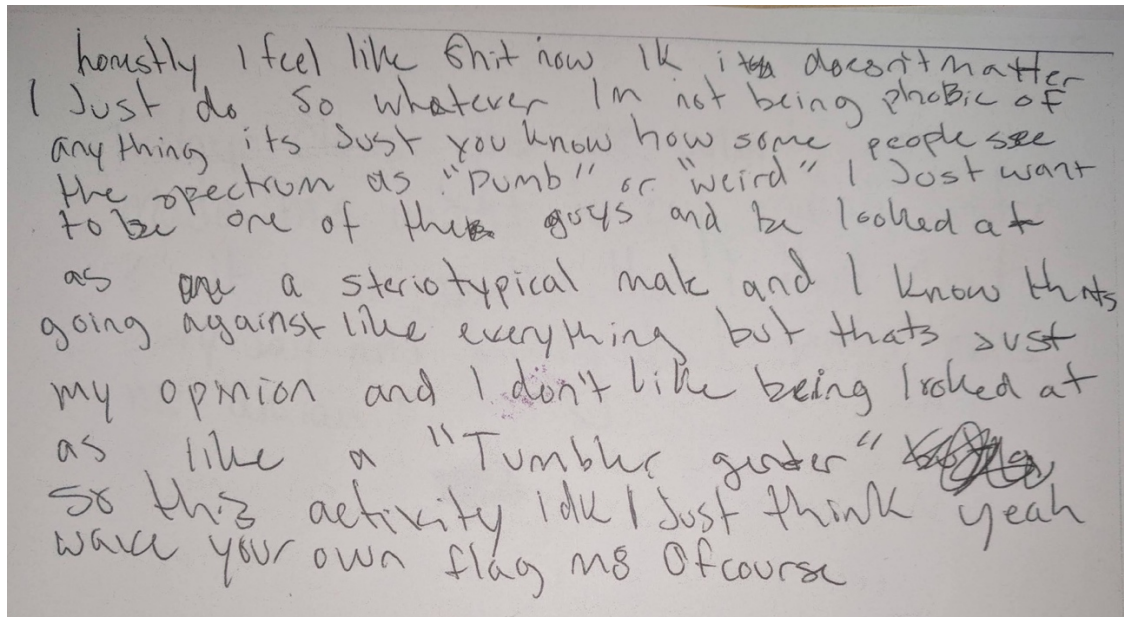 honestly I feel like Shit now Ik it doesn't matter
I Just do So whatever Im not being phobic of
anything its Just you know how some people see
the spectrum as "Dumb" or "weird" I Just want
to be one of the guys and be looked at
as a steriotypical male and I know thats
going against like everything but thats Just
my opinion and I don't like being looked at
as like a "Tumbler gender"
so this activity idk I Just think yeah
wave your own flag m8 Ofcourse